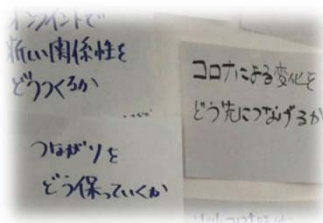 オンラインで
新しい関係性を
どうつくるか
つながりを
どう保っていくか
コロナによる変化を
どう先につなげるか